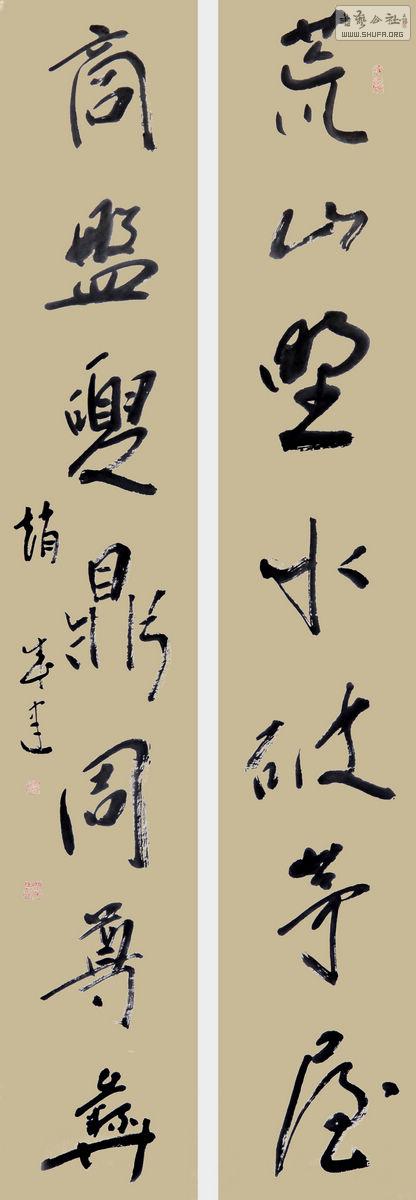 书艺公社
WWW.SHUFA.ORG
荒山野水破茅屋
商盤夏鼎周尊彝
趙